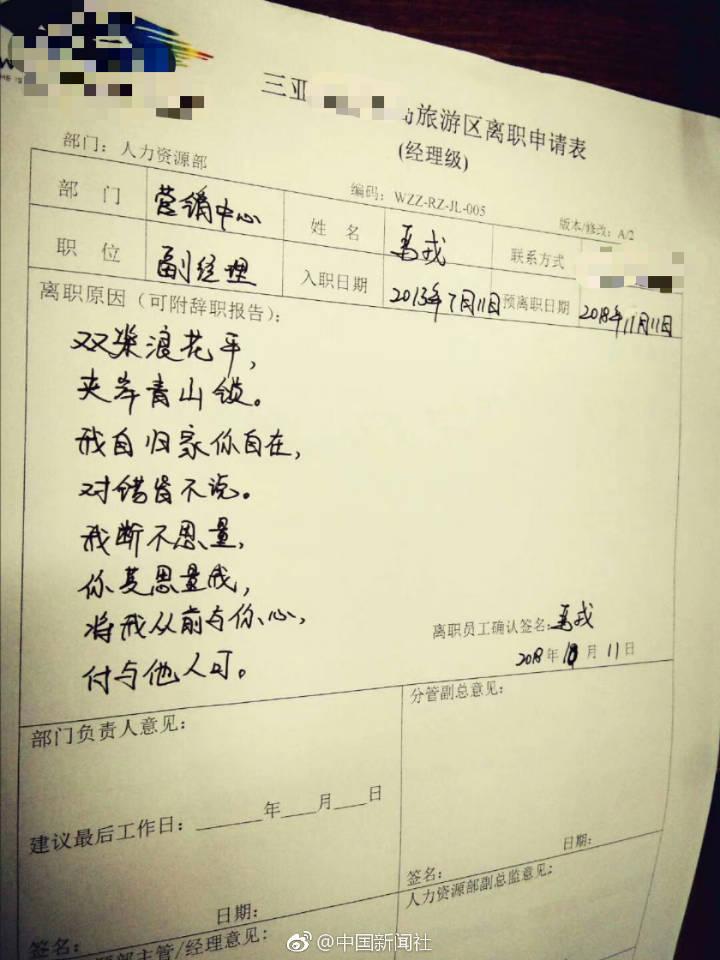 三亚 岛旅游区离职申请表
(经理级)
部门：人力资源部 编码：WZZ-RZ-JL-005 版本/修改：A/2
部 门 营销中心 姓 名 禹戎 联系方式
职 位 副经理 入职日期 2013年7月11日 预离职日期 2018年11月11日
离职原因（可附辞职报告）：
双桨浪花平，
夹岸青山锁。
我自归家你自在，
对错皆不说。
我断不思量，
你莫思量我，
将我从前与你心，
付与他人可。
离职员工确认签名：禹戎
2018年10月11日
部门负责人意见： 分管副总意见：
建议最后工作日：______年___月___日
签名： 日期：
日期： 人力资源部副总监意见：
签名：
部主管/经理意见：
@中国新闻社